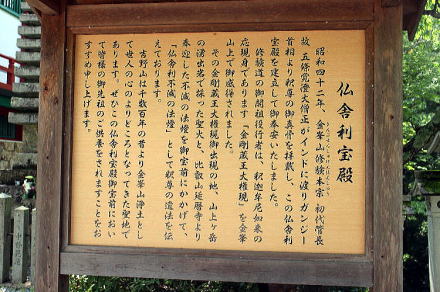 仏舎利宝殿
昭和四十二年、金峯山修験本宗 初代管長
故 五條覚澄大僧正がインドに渡りガンジー
首相より釈尊の御真骨を拝戴し、この仏舎利
宝殿を建立して御奉安いたしました。
修験道の御開祖役行者は、釈迦牟尼如来の
応現身であります「金剛蔵王大権現」を金峯
山上で御感得されました。
その金剛蔵王大権現御出現の地、山上ヶ岳
の湧出岩で採った聖火と、比叡山延暦寺より
奉迎した不滅の法燈を御宝前にかかげて、
「仏舎利不滅の法燈」として釈尊の遺法を伝
えております。
吉野山は千数百年の昔より金峯の浄土とし
て世人の心のよりどころとなってきた聖地で
あります。ぜひこの仏舎利宝殿御宝前におい
て皆様の御先祖のご供養をされますことをお
すすめ申し上げます。